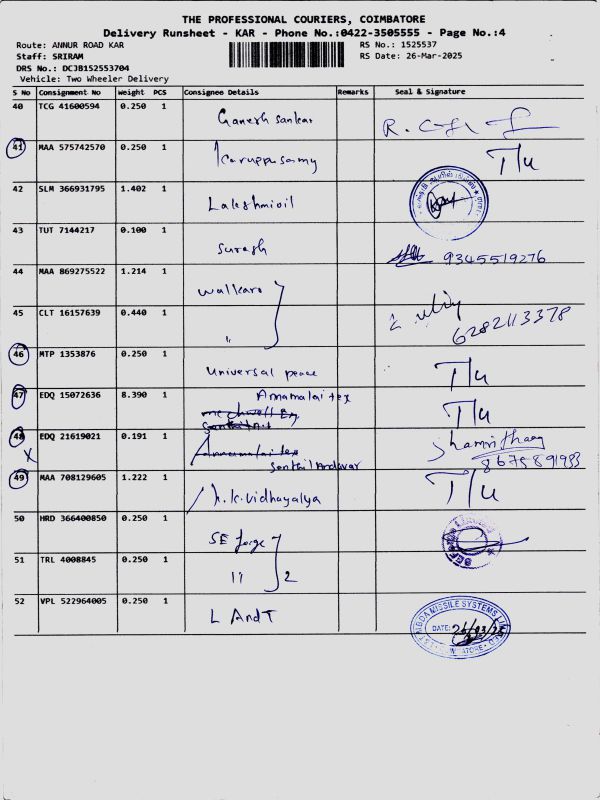 THE PROFESSIONAL COURIERS, COIMBATORE
Delivery Runsheet - KAR - Phone No.:0422-3505555 - Page No.:4
Route: ANNUR ROAD KAR RS No.: 1525537
Staff: SRIRAM RS Date: 26-Mar-2025
DRS No.: DCJB152553704
Vehicle: Two Wheeler Delivery
S No Consignment No Weight PCS Consignee Details Remarks Seal & Signature
40 TCG 41600594 0.250 1 Ganesh Sankar
41 MAA 575742570 0.250 1 Karuppusamy T/u
42 SLM 366931795 1.402 1 Lakshmi oil
43 TUT 7144217 0.100 1 Suresh 9345519276
44 MAA 869275522 1.214 1 Walkaro
45 CLT 16157639 0.440 1 " 6282113378
46 MTP 1353876 0.250 1 Universal peace T/u
47 EDQ 15072636 8.390 1 Annamalai tex T/u
48 EDQ 21619021 0.191 1 Annamalai tex Senthil Andavar 8675891933
X
49 MAA 708129605 1.222 1 Vidhayalya T/u
50 HRD 366400850 0.250 1 SE forge
51 TRL 4008845 0.250 1 11 2
52 VPL 522964005 0.250 1 L And T
MISSILE SYSTEMS
DATE: 26/03/25